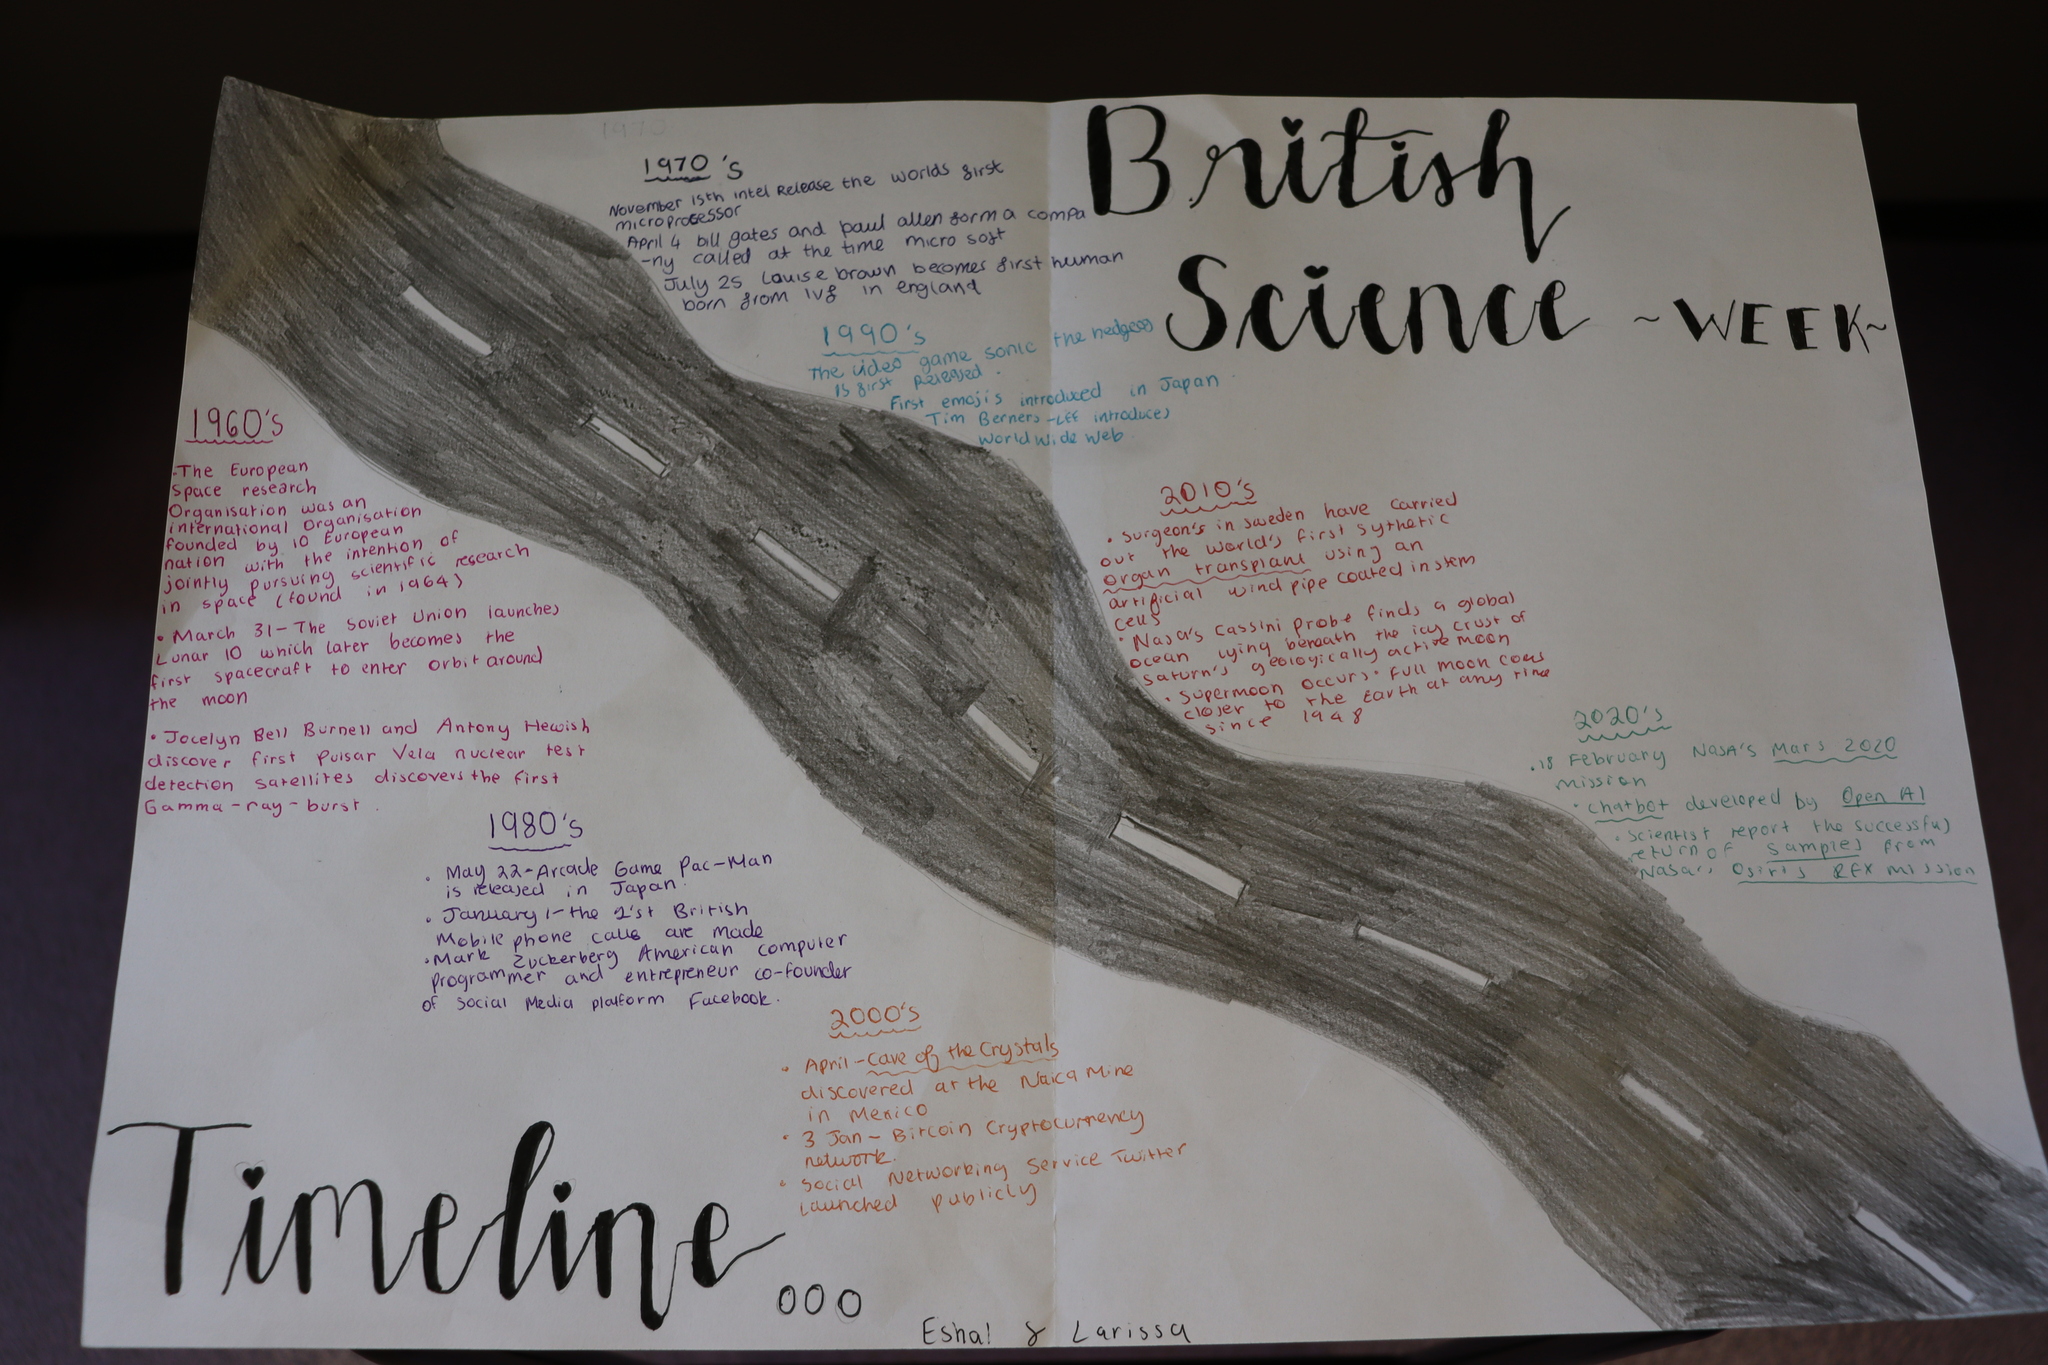 British
Science ~WEEK~
1970
1970's
November 15th intel Release the worlds first
microprocessor
April 4 bill gates and paul allen form a compa
-ny called at the time micro soft
July 25 Louise brown becomes first human
born from IVF in england
1990's
The video game sonic the hedgeog
is first released.
First emojis introduced in Japan
Tim Berners-LEE introduces
World Wide Web.
1960's
-The European
Space research
Organisation was an
international Organisation
founded by 10 European
nation with the intention of
jointly pursuing scientific research
in space (found in 1964)
• March 31- The Soviet Union launches
Lunar 10 which later becomes the
first spacecraft to enter orbit around
the moon
• Jocelyn Bell Burnell and Antony Hewish
discover first Pulsar Vela nuclear test
detection satellites discovers the first
Gamma-ray-burst.
2010's
• Surgeon's in sweden have carried
out the world's first sythetic
organ transplant using an
artificial wind pipe coated in stem
cells
• Nasa's Cassini probe finds a global
ocean lying beneath the icy crust of
saturn's geologically active moon
• Supermoon occurs. Full moon comes
closer to the Earth at any time
since 1948
2020's
.18 February NASA's Mars 2020
mission
• chatbot developed by Open AI
• Scientist report the successful
return of samples from
Nasa's Osiris REX mission
1980's
• May 22-Arcade Game Pac-Man
is released in Japan.
• January 1-the 1'st British
Mobile phone calls are made
• Mark Zuckerberg American computer
programmer and entrepreneur co-founder
of Social Media platform Facebook.
2000's
• April-Cave of the Crystals
discovered at the Naica Mine
in Mexico
• 3 Jan- Bitcoin Cryptocurrency
network.
• Social Networking Service Twitter
launched publicly
Timeline...
Eshal & Larissa